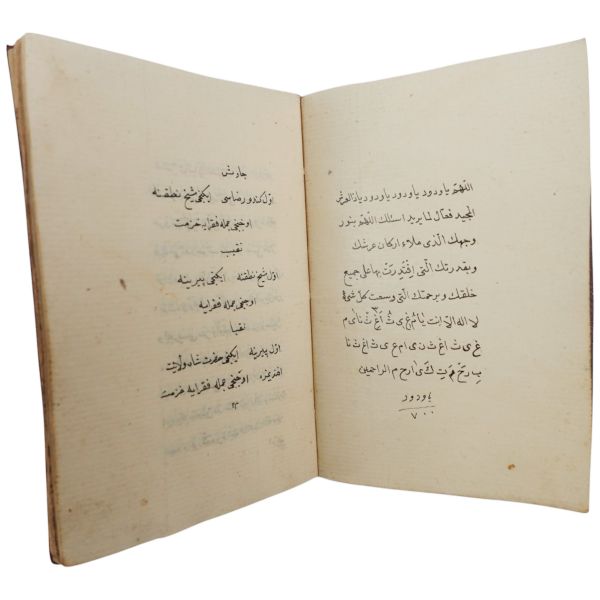 اللهم يا ودود يا ودود يا ودود يا ذا العرش
المجيد فعال لما يريد اسئلك اللهم بنور
وجهك الذى ملاء اركان عرشك
وبقدرتك التى اقتدرت بها على جميع
خلقك وبرحمتك التى وسعت كل شئ
لا اله الا انت يا م غ ى ث ا غ ث ن ا ى م
غ ى ث ا غ ث ن ى ا م غ ى ث ا غ ث ن ا
ب ر ح م ت ك ى ا ر ح م الراحمين
يا ودود
٧٠٠
جاوش
اول كندو رضاسى ايكنجى شيخ نطقنه
اوجنجى جمله فقرايه خزمت
نقيب
اول شيخ نطقنه ايكنجى پيرينه
اوجنجى جمله فقرايه
نقبا
اول پيرينه ايكنجى حضرت شاه ولايت
افنديمزه اوجنجى جمله فقرايه خزمت